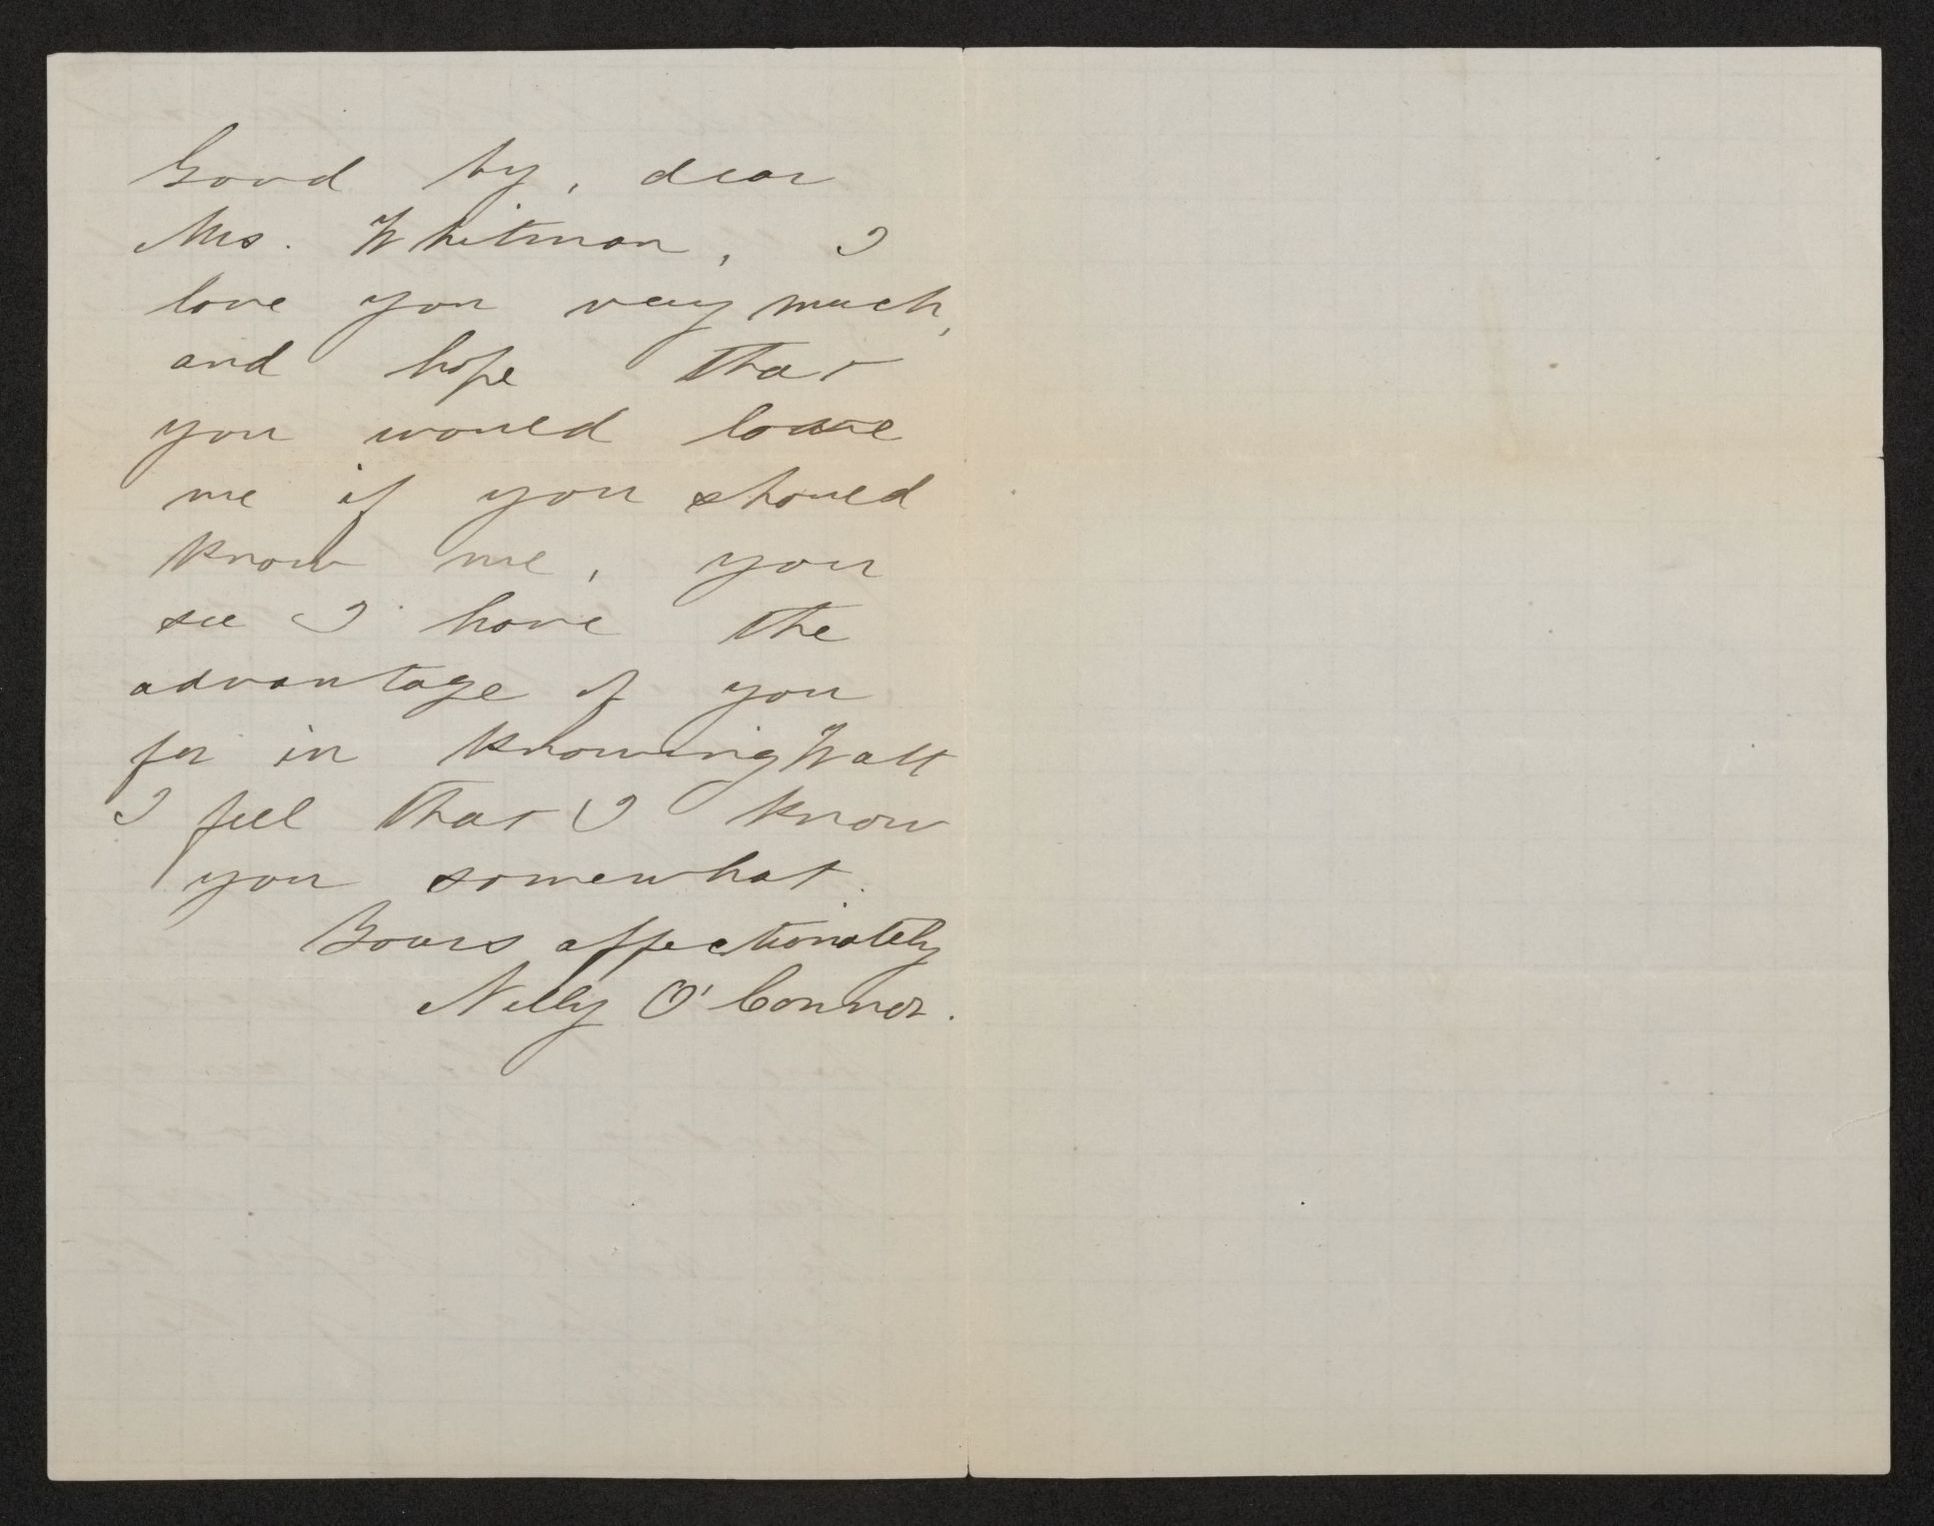 Good by, dear
Mrs. Whitman, I
love you very much,
and hope that
you would love
me if you should
know me, you
see I have the
advantage of you
for in knowing Walt
I feel that I know
you somewhat.
Yours affectionately
Nelly O'Connor.